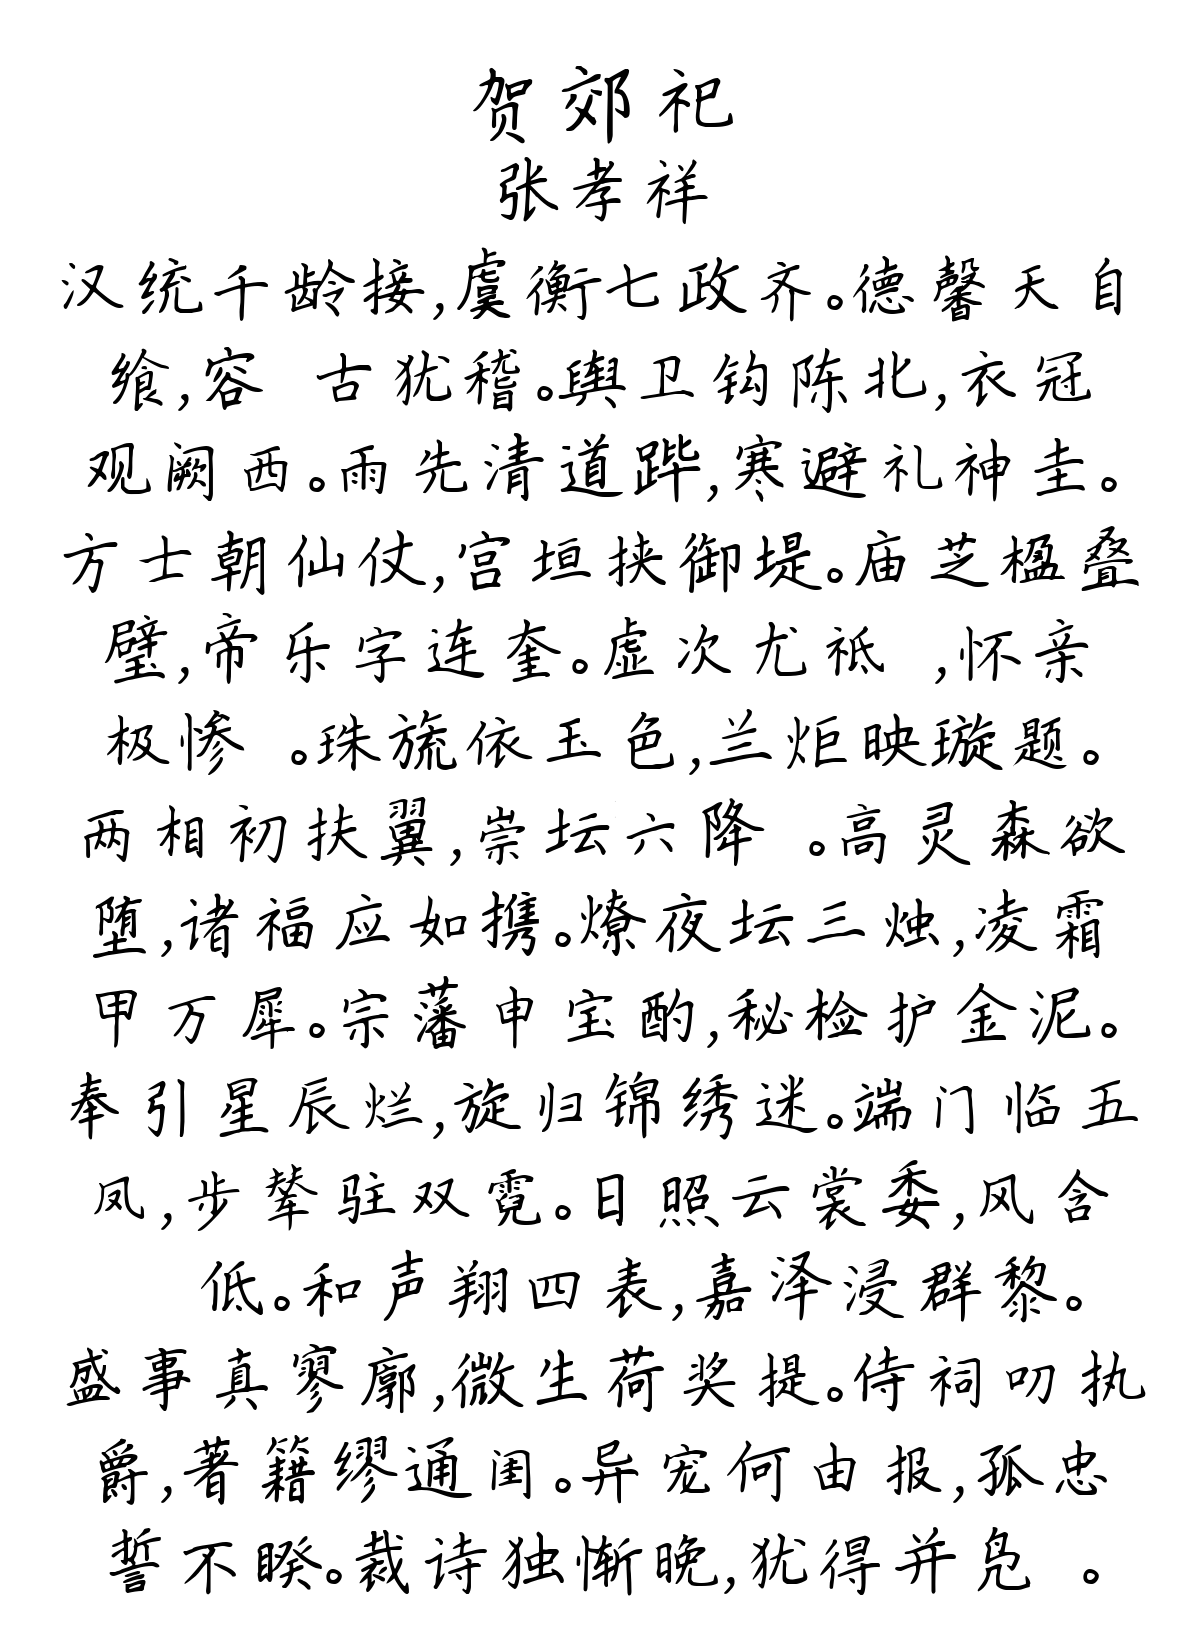 贺郊祀
张孝祥
汉统千龄接,虞衡七政齐。德馨天自
飨,容 古犹稽。舆卫钩陈北,衣冠
观阙西。雨先清道跸,寒避礼神圭。
方士朝仙仗,宫垣挟御堤。庙芝楹叠
璧,帝乐字连奎。虚次尤祗 ,怀亲
极惨 。珠旒依玉色,兰炬映璇题。
两相初扶翼,崇坛六降 。高灵森欲
堕,诸福应如携。燎夜坛三烛,凌霜
甲万犀。宗藩申宝酌,秘检护金泥。
奉引星辰烂,旋归锦绣迷。端门临五
凤,步辇驻双霓。日照云裳委,风含
低。和声翔四表,嘉泽浸群黎。
盛事真寥廓,微生荷奖提。侍祠叨执
爵,著籍缪通闺。异宠何由报,孤忠
誓不睽。裁诗独惭晚,犹得并凫 。